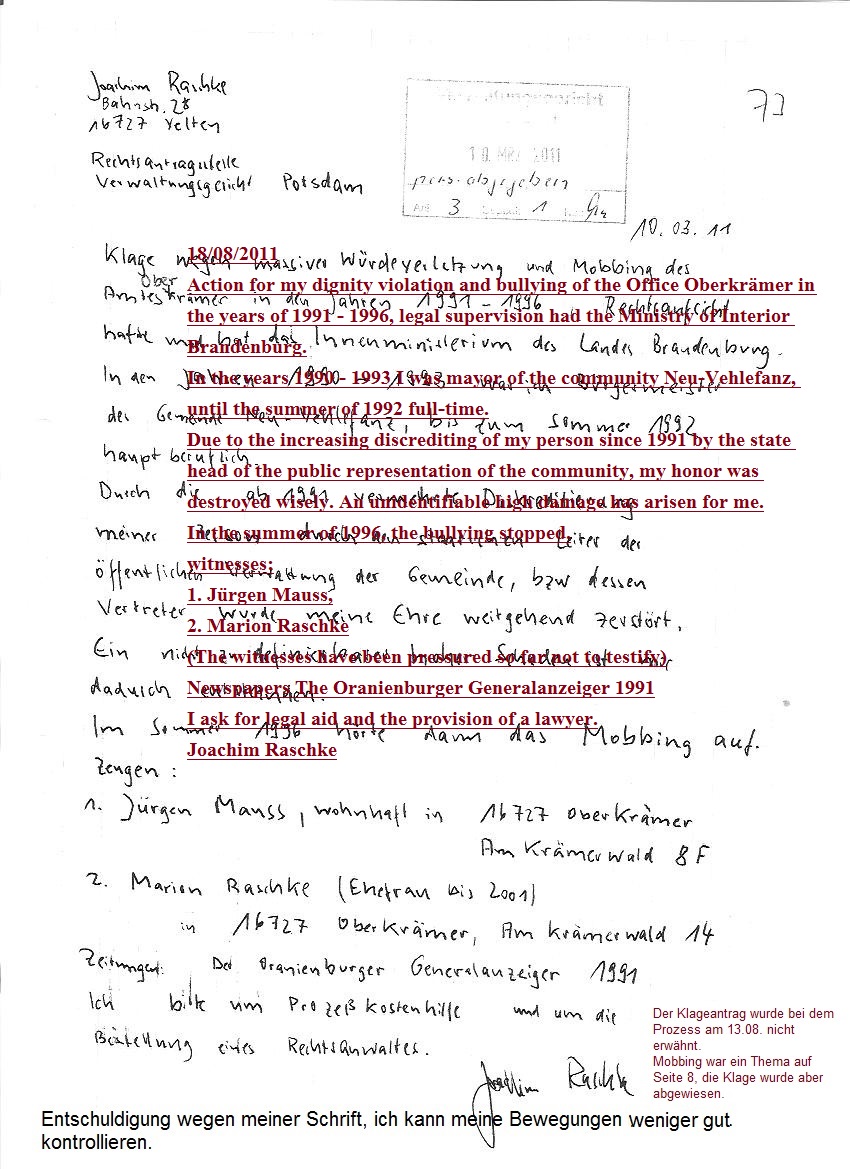 Joachim Raschke
Bahnstr. 28
16727 Velten
73
Rechtsantragstelle
Verwaltungsgericht Potsdam
10. MRZ. 2011
pers. abgegeben
3 1
10.03.11
Klage wegen massiver Würdeverletzung und Mobbing des
Amtes Oberkrämer in den Jahren 1991 - 1996, Rechtsaufsicht
hatte und hat das Innenministerium des Landes Brandenburg.
In den Jahren 1990 - 1993 war ich Bürgermeister
der Gemeinde Neu-Vehlefanz, bis zum Sommer 1992
hauptberuflich
Durch die ab 1991
meiner Person durch den staatlichen Leiter der
öffentlichen Verwaltung der Gemeinde, bzw dessen
Vertreter wurde meine Ehre weitgehend zerstört.
Ein nicht zu Schaden ist mir
dadurch entstanden.
Im Sommer 1996 hörte dann das Mobbing auf.
Zeugen :
1. Jürgen Mauss, wohnhaft in 16727 Oberkrämer
Am Krämerwald 8F
2. Marion Raschke (Ehefrau bis 2001)
in 16727 Oberkrämer, Am Krämerwald 14
Zeitungen: Der Oranienburger Generalanzeiger 1991
Ich bitte um Prozeßkostenhilfe und um die
Bestellung eines Rechtsanwaltes.
Joachim Raschke
18/08/2011
Action for my dignity violation and bullying of the Office Oberkrämer in
the years of 1991 - 1996, legal supervision had the Ministry of Interior
Brandenburg.
In the years 1990 - 1993 I was mayor of the community Neu-Vehlefanz,
until the summer of 1992 full-time.
Due to the increasing discrediting of my person since 1991 by the state
head of the public representation of the community, my honor was
destroyed wisely. An unidentifiable high damage has arisen for me.
In the summer of 1996, the bullying stopped.
witnesses;
1. Jürgen Mauss,
2. Marion Raschke
(The witnesses have been pressured so far not to testify)
Newspapers The Oranienburger Generalanzeiger 1991
I ask for legal aid and the provision of a lawyer.
Joachim Raschke
Der Klageantrag wurde bei dem
Prozess am 13.08. nicht
erwähnt.
Mobbing war ein Thema auf
Seite 8, die Klage wurde aber
abgewiesen.
Entschuldigung wegen meiner Schrift, ich kann meine Bewegungen weniger gut
kontrollieren.